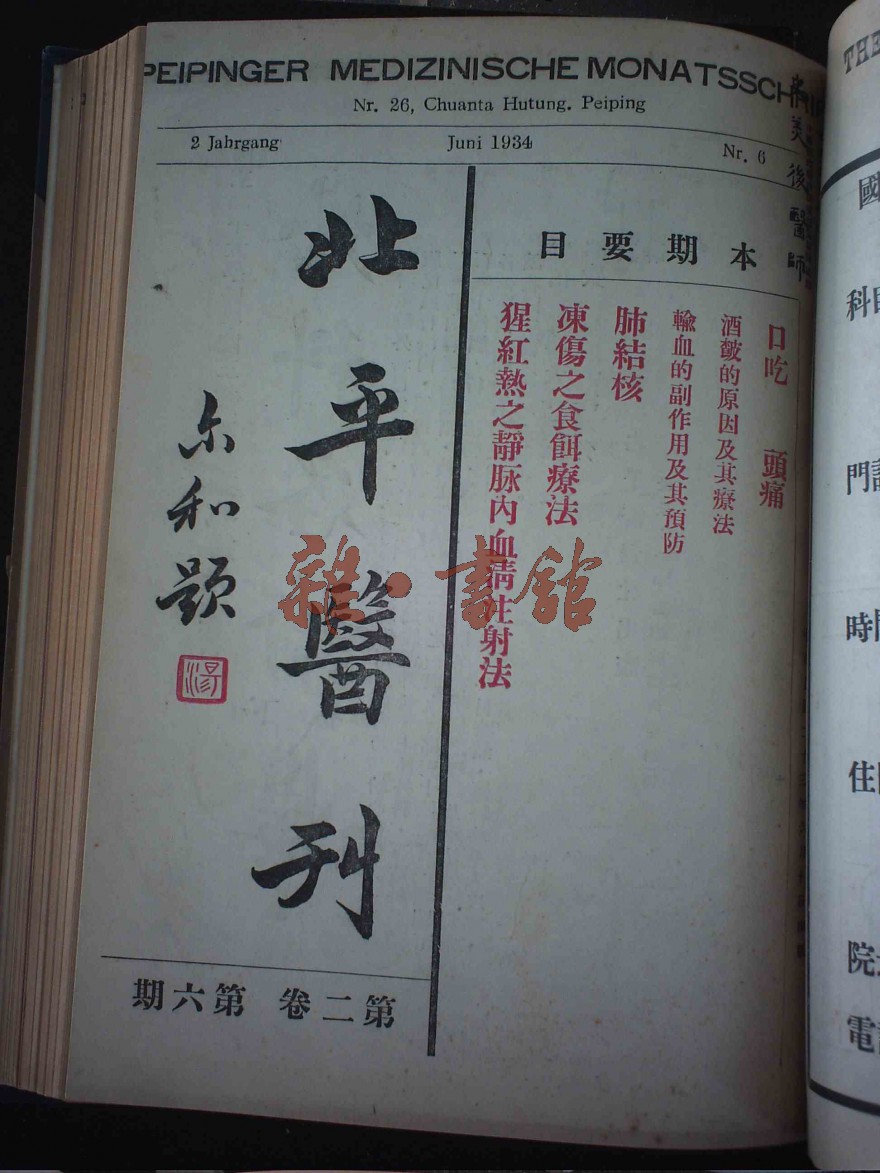 PEIPINGER MEDIZINISCHE MONATSSCH
Nr. 26, Chuanta Hutung. Peiping
2 Jahrgang Juni 1934 Nr. 6
本期要目
口吃 頭痛
酒皶的原因及其療法
輸血的副作用及其預防
肺結核
凍傷之食餌療法
猩紅熱之靜脈內血清注射法
北平醫刊
尔和題
湯
第二卷 第六期
後醫師
雜·書館
THE
國
科目
門診
時間
住
院
電